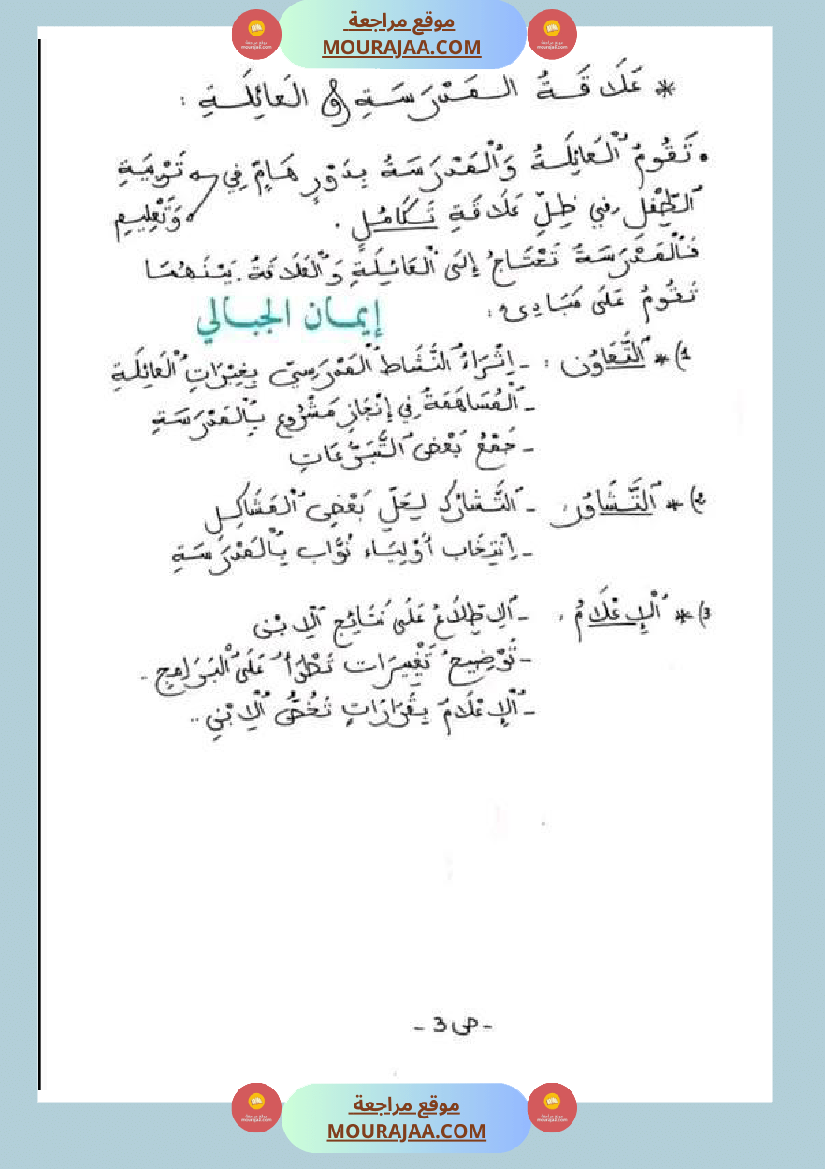 موقع مراجعة
MOURAJAA.COM
* عَلَاقَةُ المَدْرَسَةِ و العَائِلَةِ :
• تَقُومُ العَائِلَةُ وَالمَدْرَسَةُ بِدَوْرٍ هَامٍّ فِي تَرْبِيَةِ
وَتَعْلِيمِ
الطِّفْلِ فِي ظِلِّ عَلَاقَةِ تَكَامُلٍ .
فَالمَدْرَسَةُ تَحْتَاجُ إِلَى العَائِلَةِ وَالعَلَاقَةُ بَيْنَهُمَا
تَقُومُ عَلَى مَبَادِئ :
إيمان الجبالي
1) * التَّعَاوُن : - إِثْرَاءُ النَّشَاط المَدْرَسِيّ بِخِبْرَاتِ العَائِلَةِ
- المُسَاهَمَةُ فِي إِنْجَازِ مَشْرُوع بِالمَدْرَسَةِ
- جَمْعُ بَعْضِ التَّبَرُّعَاتِ
2) * التَّشَاوُر : - التَّشَارُكُ لِحَلِّ بَعْضِ المَشَاكِلِ
- اِنْتِخَاب أَوْلِيَاء نُوَّاب بِالمَدْرَسَةِ
3) * الإِعْلَامُ : - الاِطِّلَاعُ عَلَى نَتَائِج الاِبْنِ
- تَوْضِيحُ تَغْيِيرَات تَطْرَأُ عَلَى البَرَامِج .
- الإِعْلَامُ بِقَرَارَاتٍ تَخُصُّ الاِبْنِ ..
- ص 3 -
موقع مراجعة
MOURAJAA.COM